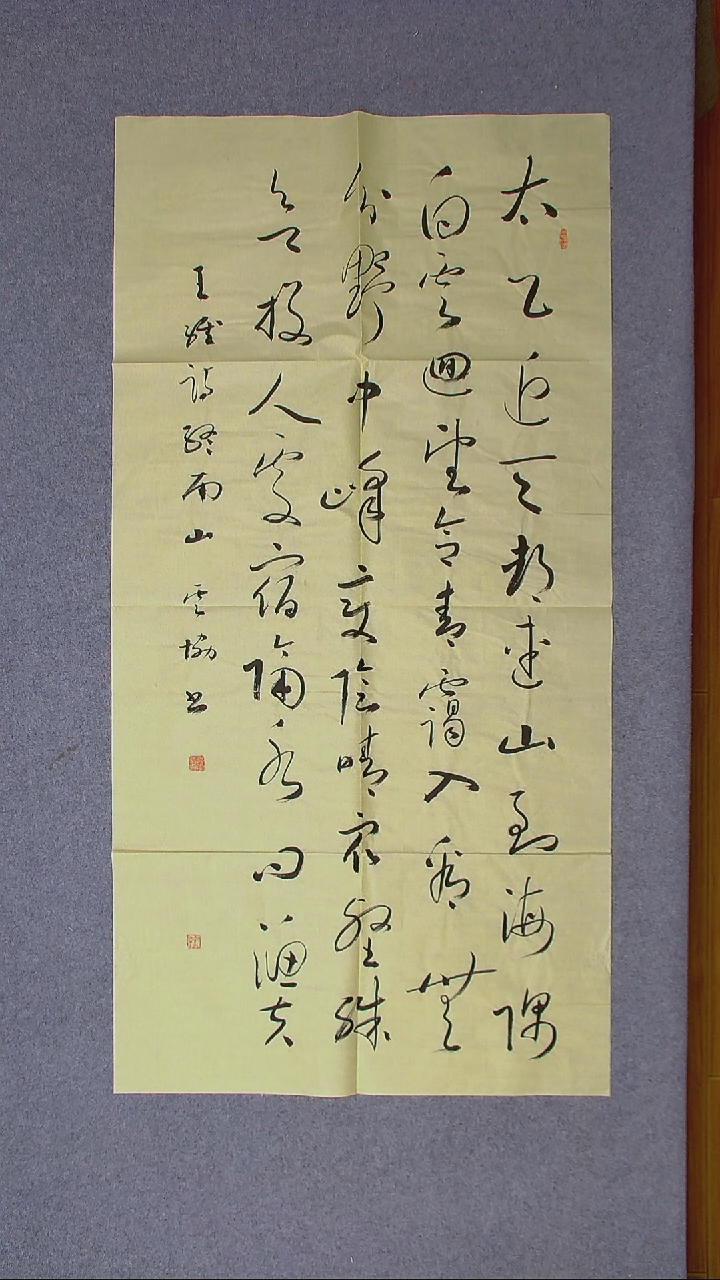 太乙近天都連山到海隅
白雲迴望合青靄入看無
分野中峰變陰晴眾壑殊
欲投人處宿隔水問漁夫
王維詩終南山 雲協書